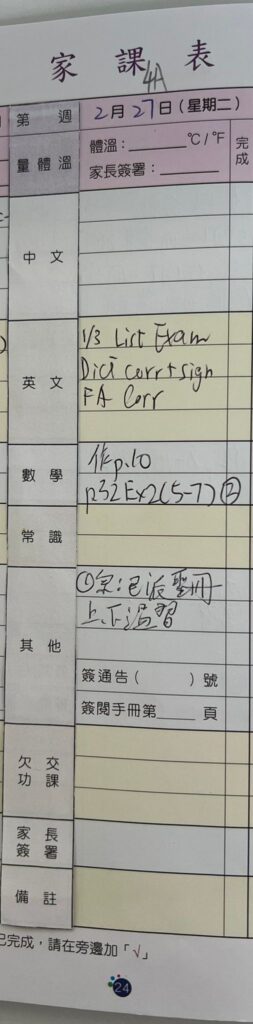 家課表
4A
第 週 2月27日(星期二)
量體溫 體溫:________℃/℉ 完成
家長簽署:________
中文
英文 1/3 List Exam
Dict corr+sign
FA Corr
數學 作p.10
p32Ex2(5-7)
常識
其他 ①宗:已派聖冊
上、下溫習
簽通告( )號
簽閱手冊第_____頁
欠交功課
家長簽署
備註
已完成,請在旁邊加「√」
24